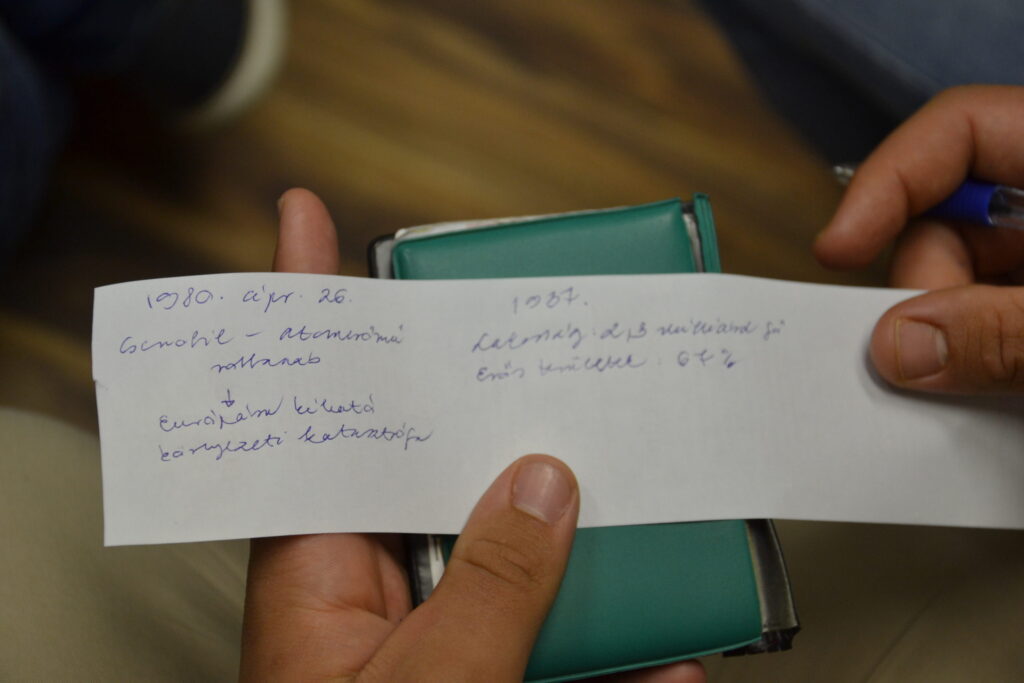 1980. ápr. 26.
Csernobil - atomerőmű
robbanás
↓
Európára kiható
környezeti katasztrófa
1987.
Lakosság: 2,3 milliárd fő
Erős területek: 67%